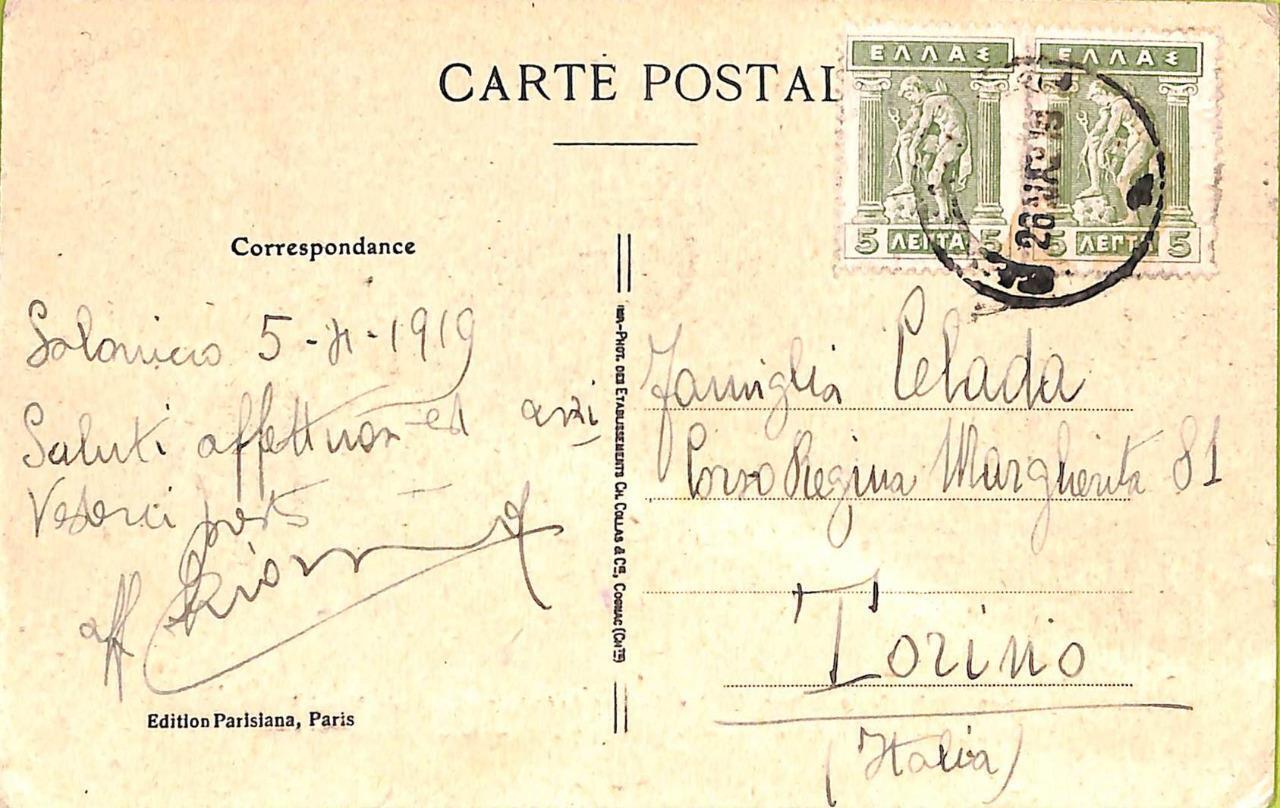 CARTE POSTAL
ΕΛΛΑΣ ΕΛΛΑΣ
5 ΛΕΠΤΑ 5 5 ΛΕΠΤΑ 5
Correspondance
Salonicco 5-II-1919
Saluti affettuosi ed
Vederci presto
aff
Edition Parisiana, Paris
IMP.-PHOT. DES ETABLISSEMENTS CH. COLLAS & Cie, COGNAC (CHTE)
Famiglia Celada
Corso Regina Margherita 81
Torino
(Italia)